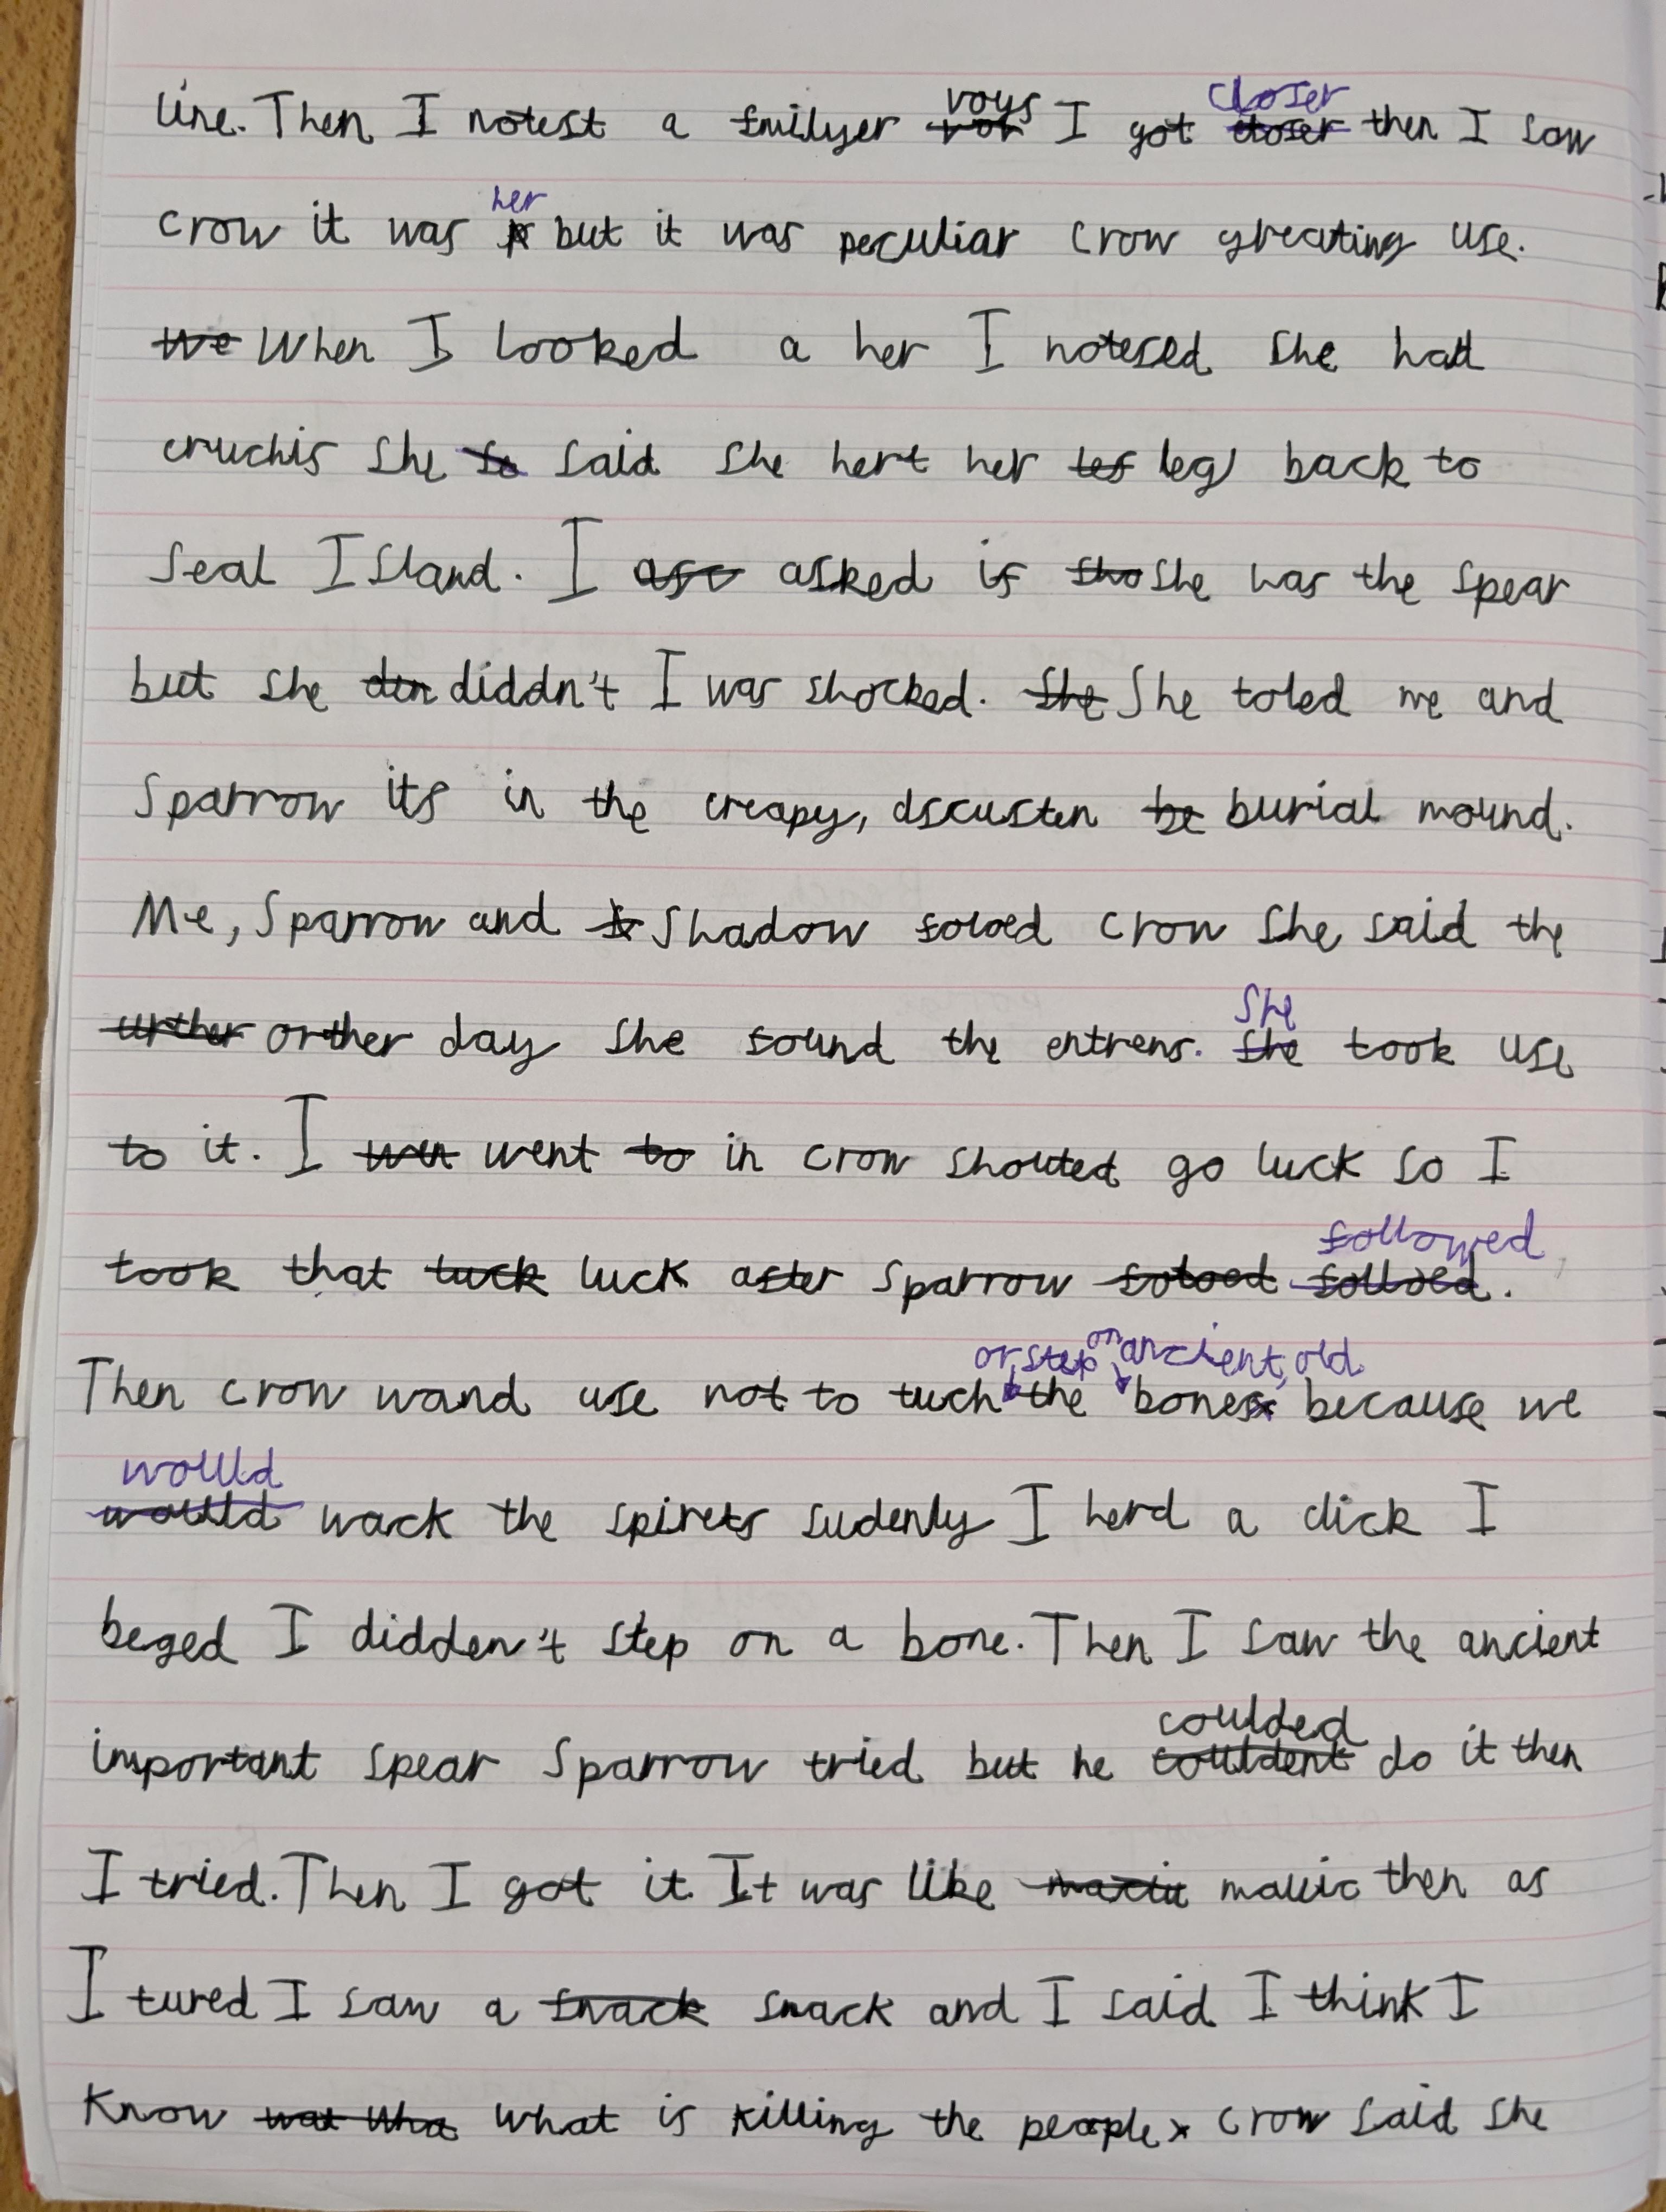 line. Then I notest a fmilyer voys I got closer then I saw
crow it was her but it was peculiar crow greating use.
When I looked a her I notesed she had
cruchis she said she hert her leg back to
Seal Island. I asked if she was the spear
but she diddn't I was shocked. She toled me and
Sparrow its in the creapy, dscusten burial mound.
Me, Sparrow and Shadow foloed crow she said the
orther day she found the entrens. She took use
to it. I went in crow shouted go luck so I
took that luck after Sparrow followed.
Then crow wand use not to tuch or step on the ancient, old bones because we
would wack the spirets sudenly I herd a click I
beged I didden't step on a bone. Then I saw the ancient
important spear Sparrow tried but he coulded do it then
I tried. Then I got it. It was like then as
I tured I saw a snack and I said I think I
know what is killing the people crow said she